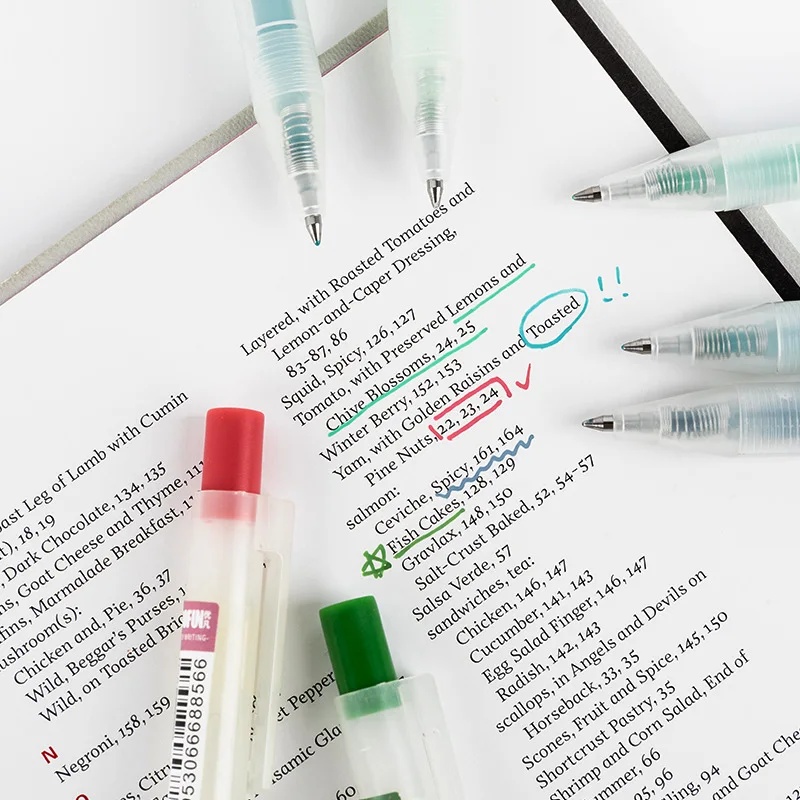 Layered, with Roasted Tomatoes and
Lemon-and-Caper Dressing,
83–87, 86
Squid, Spicy, 126, 127
Tomato, with Preserved Lemons and
Chive Blossoms, 24, 25
Winter Berry, 152, 153
Yam, with Golden Raisins and Toasted
Pine Nuts, 22, 23, 24
salmon:
Ceviche, Spicy, 161, 164
Fish Cakes, 128, 129
Gravlax, 148, 150
Salt-Crust Baked, 52, 54–57
Salsa Verde, 57
sandwiches, tea:
Chicken, 146, 147
Cucumber, 141, 143
Egg Salad Finger, 146, 147
Radish, 142, 143
scallops, in Angels and Devils on
Horseback, 33, 35
Scones, Fruit and Spice, 145, 150
Shortcrust Pastry, 35
Shrimp and Corn Salad, End of
66
95, 96
94
and Goat
!!
Leg of Lamb with Cumin
18, 19
Dark Chocolate, 134, 135
Goat Cheese and Thyme,
Marmalade Breakfast,
Chicken and, Pie, 36, 37
Wild, Beggar's Purses,
Wild, on Toasted
N
Negroni, 158, 159
Pepper
60
WRITING
53066688566